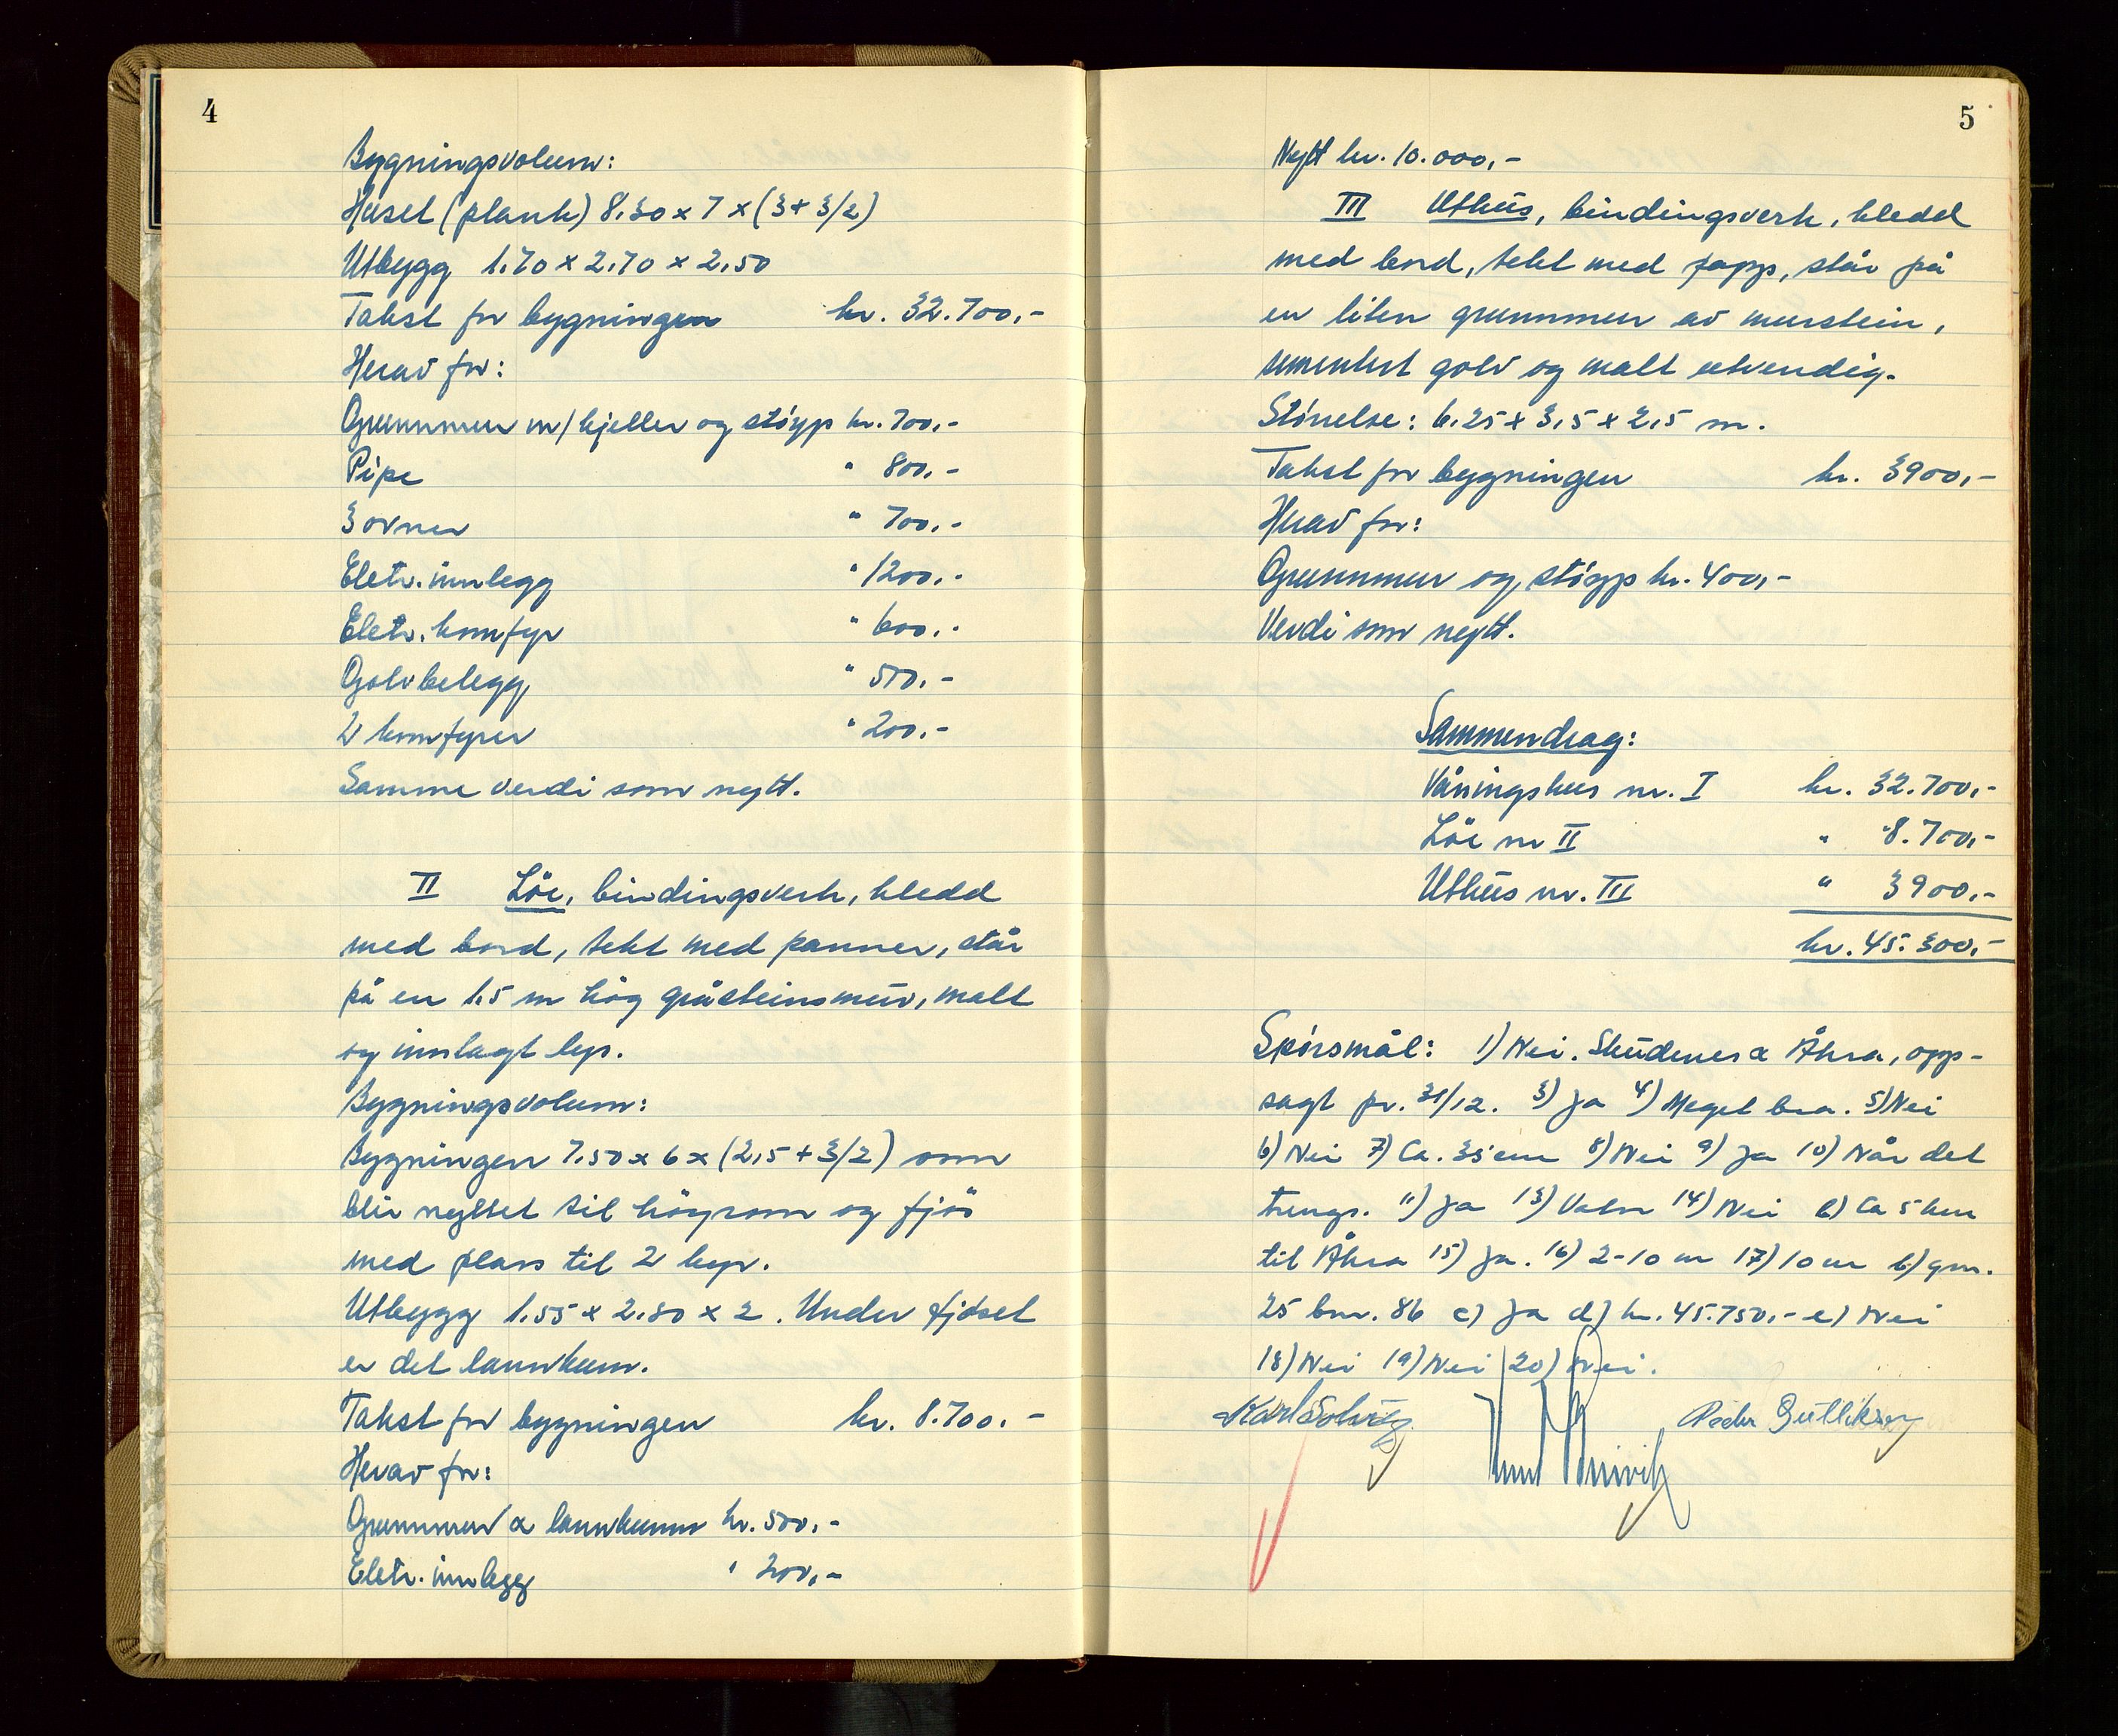 4
Bygningsvolum:
Huset (plank) 8,30 x 7 x (3 + 3/2)
Utbygg 1,70 x 2,70 x 2,50
Takst for bygningen kr. 32.700,-
Herav for:
Grunnmur m/kjeller og støyp kr. 700,-
Pipe " 800,-
3 ovner " 700,-
Eletr. innlegg " 1200,-
Eletr. komfyr " 600,-
Golvbelegg " 500,-
2 komfyrer " 200,-
Samme verdi som nytt.
II Löe, bindingsverk, kledd
med bord, tekt med panner, står
på en 1,5 m høg gråsteinsmur, malt
og innlagt lys.
Bygningsvolum:
Bygningen 7,50 x 6 x (2,5 + 3/2) som
blir nyttet til höyrom og fjös
med plass til 2 kyr.
Utbygg 1,55 x 2,80 x 2. Under fjøset
er det lannkum.
Takst for bygningen kr. 8.700,-
Herav for:
Grunnmur & lannkum kr. 500,-
Eletr. innlegg " 200,-
5
Nytt kr. 10.000,-
III Uthus, bindingsverk, kledd
med bord, tekt med papp, står på
en liten grunnmur av murstein,
sementert golv og malt utvendig.
Størrelse: 6,25 x 3,5 x 2,5 m.
Takst for bygningen kr. 3900,-
Herav for:
Grunnmur og støyp kr. 400,-
Verdi som nytt.
Sammendrag:
Våningshus nr. I kr. 32.700,-
Löe nr II " 8.700,-
Uthus nr. III " 3900,-
kr. 45.300,-
Spørsmål: 1) Nei. Skudenes & Åkra, opp-
sagt pr. 31/12. 3) Ja 4) Meget bra. 5) Nei
6) Nei 7) Ca. 35 cm 8) Nei 9) Ja 10) Når det
trengs. 11) Ja 13) Vatn 14) Nei b) Ca 5 km
til Åkra 15) Ja. 16) 2-10 m 17) 10 m b) gnr.
25 bnr. 86 c) Ja d) kr. 45.750,- e) Nei
18) Nei 19) Nei 20) Nei.
Karl Solvig Peder Gulliksen